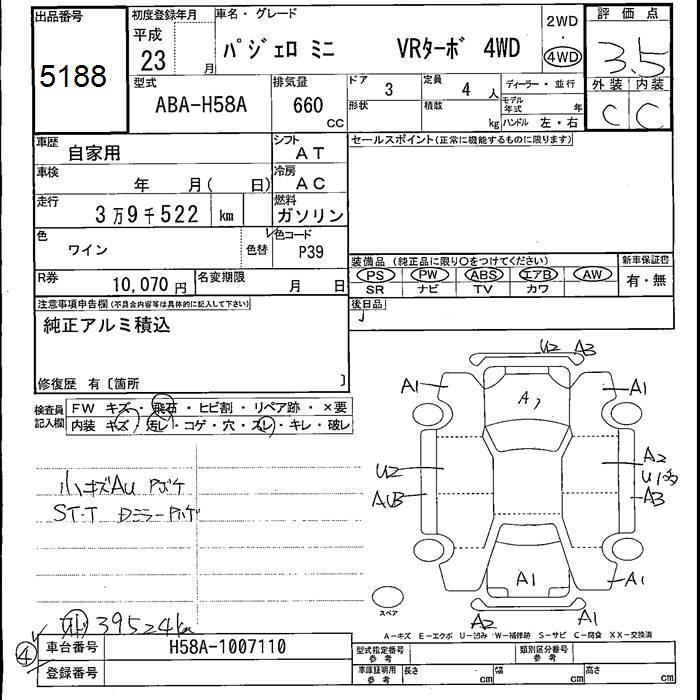 出品番号
5188
初度登録年月
平成
23 月
車名・グレード
パジェロ ミニ VRターボ 4WD
2WD
・
4WD
評価点
3.5
外装 内装
C C
型式
ABA-H58A
排気量
660
CC
ドア
3
定員
4 人
形状
積載
kg
ディーラー・並行
モデル
年式 年
ハンドル 左・右
車歴
自家用
シフト
AT
車検
年 月( 日)
冷房
AC
走行
3万9千522 km
燃料
ガソリン
色
ワイン
色替
色コード
P39
R券
10,070円
名変期限
月 日
セールスポイント(正常に機能するものに限ります)
装備品 (純正品に限り〇をつけてください)
PS PW ABS エアB AW
SR ナビ TV カワ
新車保証書
有・無
後日品
注意事項申告欄(不具合内容等は具体的に記入して下さい)
純正アルミ積込
修復歴 有〔箇所 〕
検査員
記入欄
FW キズ・飛石・ヒビ割・リペア跡・×要
内装 キズ・汚レ・コゲ・穴・スレ・キレ・破レ
小キズAU
ST・T Dミラー
39524km
U2 A3
A1 A1
A1
U2 A2
AUB A3
A1
A1
A2 A1
スペア
A-キズ E-エクボ U-凹み W-補修跡 S-サビ C-腐食 XX-交換済
④
車台番号 H58A-1007110
登録番号
型式指定番号
参考
類別区分番号
参考
車庫証明用
参考
長さ cm 幅 cm 高さ cm